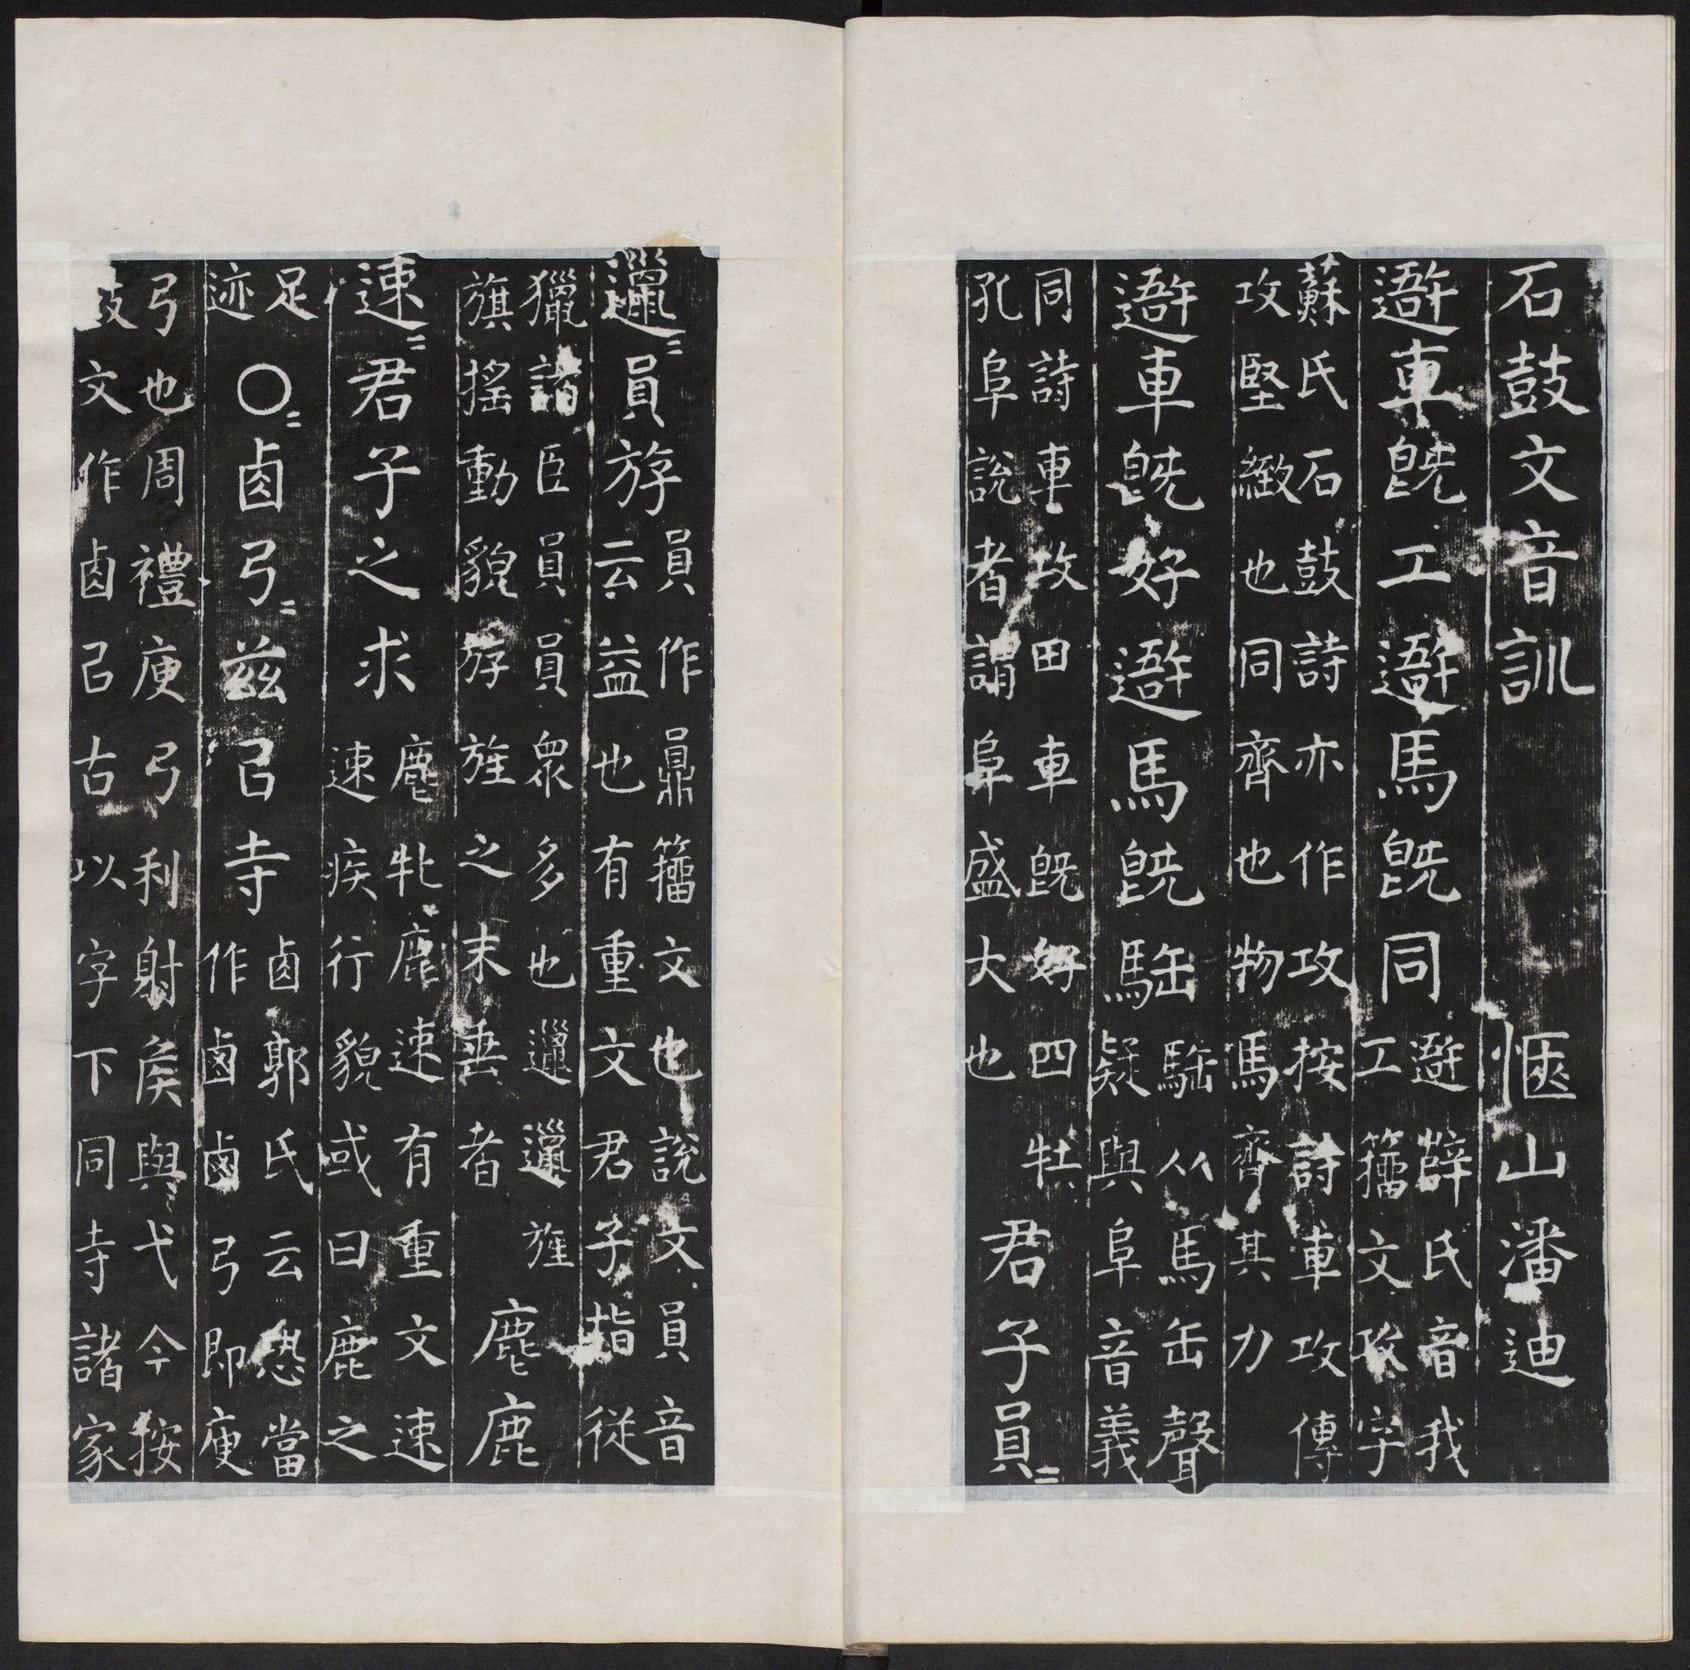 石鼓文音訓 愜山潘迪
車旣工
馬旣同
薛氏音我
工籀文攻字
蘇氏石鼓詩亦作攻按詩車攻傳
攻堅緻也同齊也物馬齊其力
車旣好
馬旣𩢾
𩢾从馬缶聲
疑與阜音義
同詩車攻田車旣好四牡
孔阜說者謂阜盛大也
君子員=
邋=員斿
員作籀文也說文員音
云益也有重文君子指從
獵諸臣員員眾多也邋邋旌
旗搖動貌斿旌之末垂者
麀鹿
速=君子之求
麀牝鹿速有重文速
速疾行貌或曰鹿之
足
迹
〇=鹵弓=兹㠯寺
鹵郭氏云恐當
作鹵鹵弓即庾
弓也周禮庾弓利射矦與弋今按
鼓文作鹵㠯古以字下同寺諸家